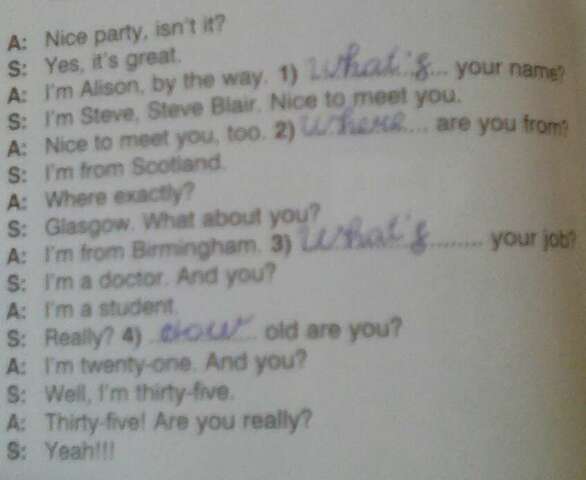 A: Nice party, isn't it?
S: Yes, it's great.
A: I'm Alison, by the way. 1) What's... your name?
S: I'm Steve, Steve Blair. Nice to meet you.
A: Nice to meet you, too. 2) Where... are you from?
S: I'm from Scotland.
A: Where exactly?
S: Glasgow. What about you?
A: I'm from Birmingham. 3) What's........ your job?
S: I'm a doctor. And you?
A: I'm a student.
S: Really? 4) How... old are you?
A: I'm twenty-one. And you?
S: Well, I'm thirty-five.
A: Thirty-five! Are you really?
S: Yeah!!!